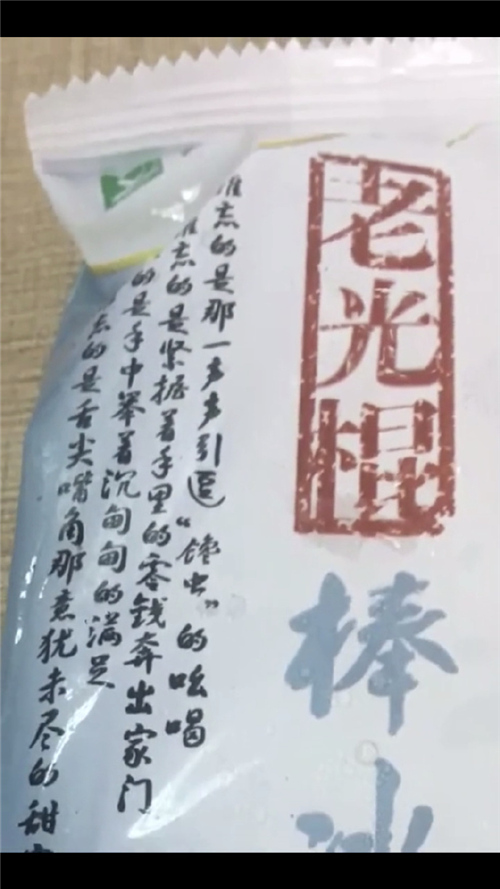 老光棍
棒冰
难忘的是那一声声引逗“馋虫”的吆喝
难忘的是紧握着手里的零钱奔出家门
的是手中举着沉甸甸的满足
忘的是舌尖嘴角那意犹未尽的甜